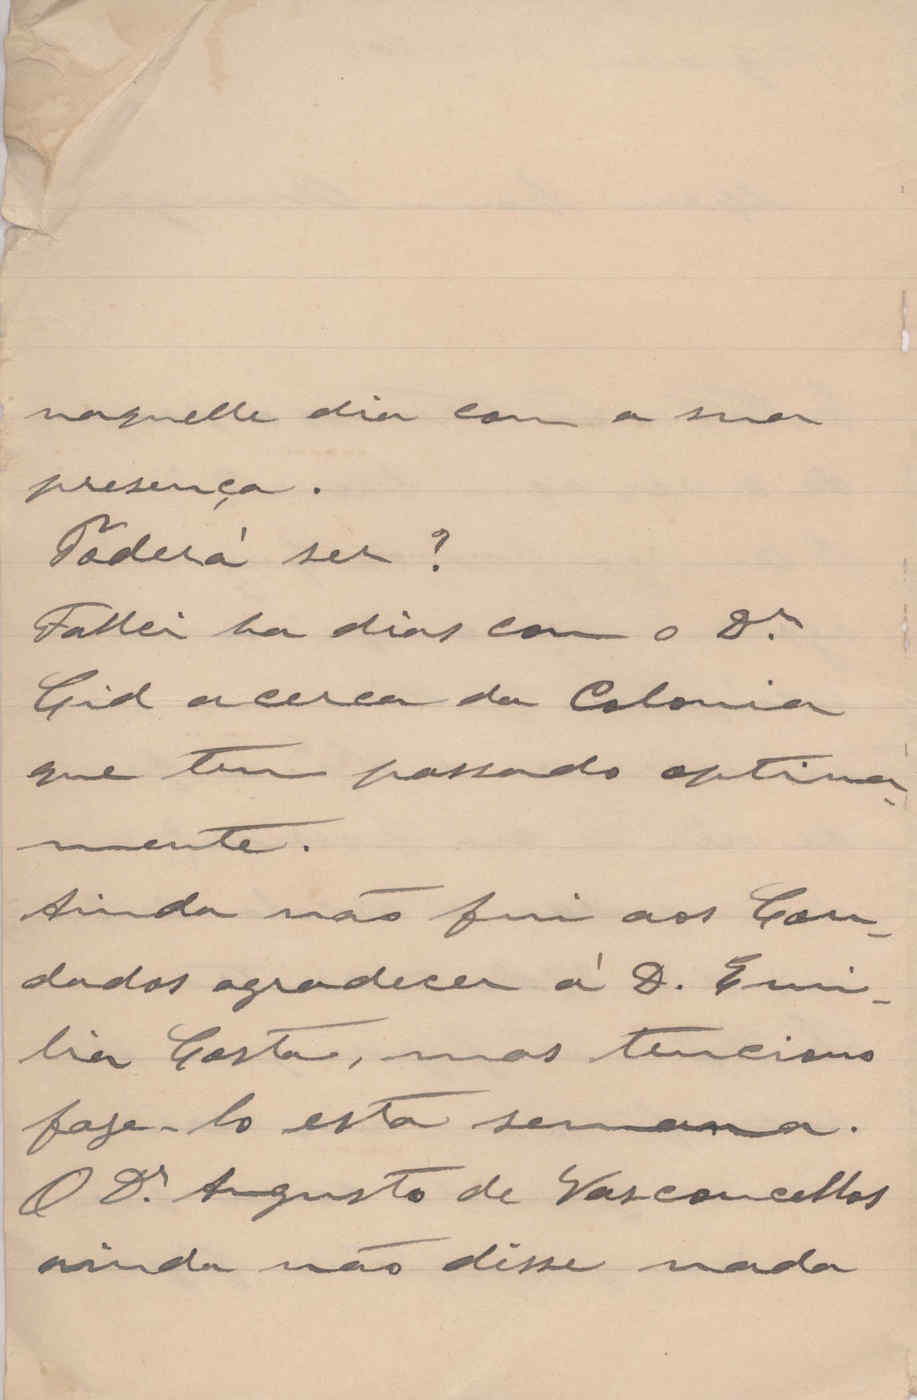 naquelle dia com a sua
presença.
Poderá ser?
Fallei ha dias com o Dr.
Cid acerca da Colonia
que tem passado optima-
mente.
Ainda não fui aos Con-
dados agradecer á D. Emi-
lia Costa, mas tenciono
faze-lo esta semana.
O Dr. Augusto de Vasconcellos
ainda não disse nada